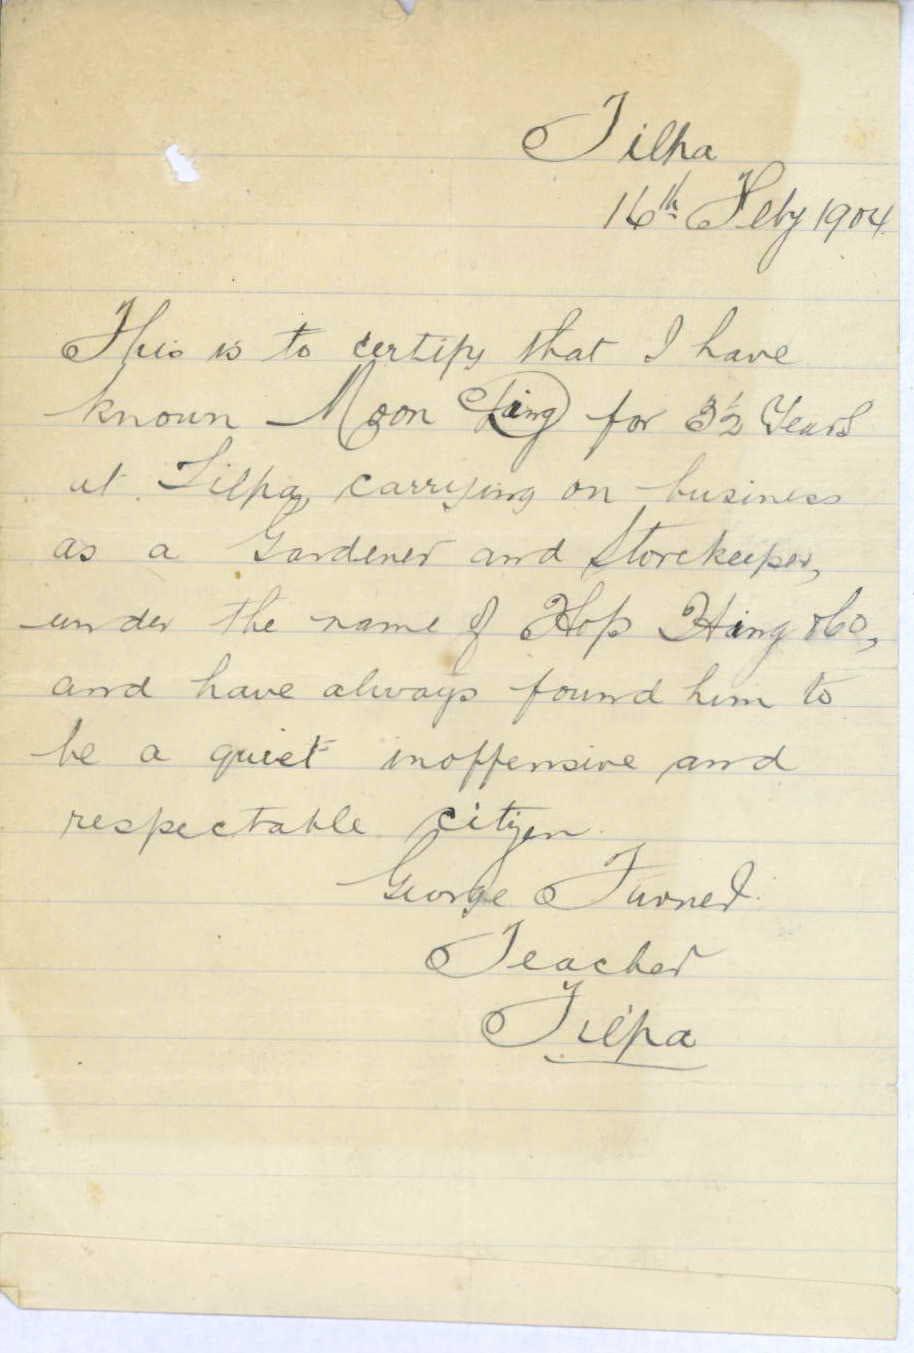 Tilpa
16th Feby 1904.
This is to certify that I have
known Moon for 3½ Years
at Tilpa, carrying on business
as a Gardener and Storekeeper,
under the name of Hop Hing &Co,
and have always found him to
be a quiet inoffensive and
respectable citizen.
George Turner.
Teacher
Tilpa